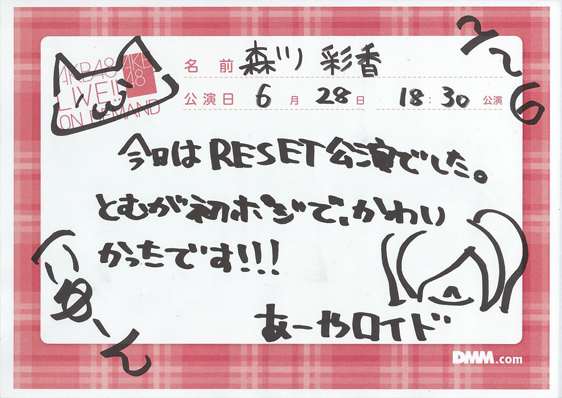 AKB48 AKB48
LIVE!!
ON DEMAND
名前 森川 彩香
公演日 6月28日 18:30 公演
今日はRESET公演でした。
とむが初ポジで、かわい
かったです!!!
あーやロイド
DMM.com